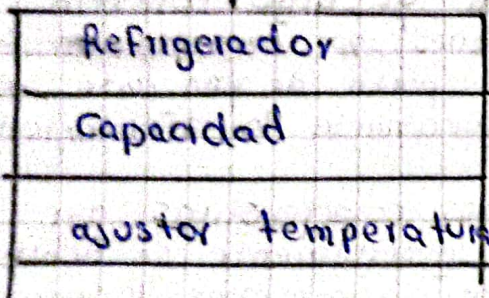 Refrigerador
Capacidad
ajustar temperatura